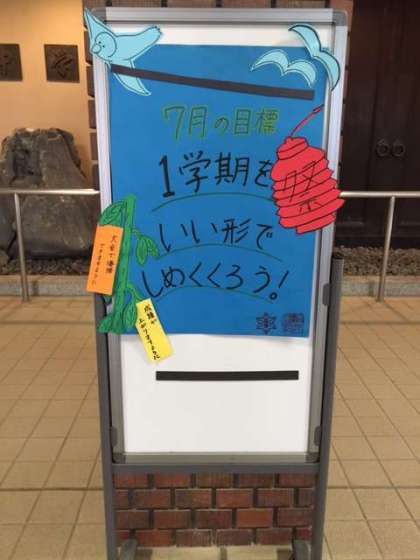 7月の目標
1学期を
いい形で
しめくくろう!
祭
大会で優勝
できますように
成績が
上がりますように